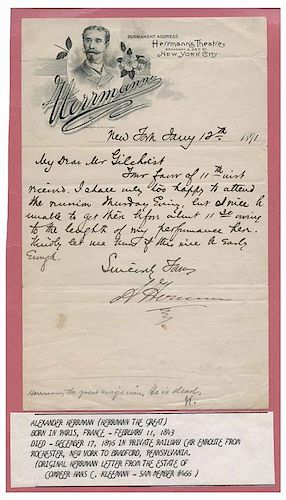 PERMANENT ADDRESS
Herrmann's Theatre
BROADWAY & 29TH ST.
NEW YORK CITY.
Herrmann
New York Jany 12th 1891
My Dear Mr Gilchrist
Your favor of 11th inst
received. I shall only too happy to attend
the reunion Thursday Evng, but I will be
unable to get there before about 11 30 owing
to the length of my performance here.
Kindly let me know if this will be Early
Enough.
Sincerely Yours
A Herrmann
Herrmann, the great magician, He is dead.
ALEXANDER HERRMANN (HERRMANN THE GREAT)
BORN IN PARIS, FRANCE - FEBRUARY 11, 1843
DIED - DECEMBER 17, 1896 IN PRIVATE RAILWAY CAR ENROUTE FROM
ROCHESTER, NEW YORK TO BRADFORD, PENNSYLVANIA.
(ORIGINAL HERRMANN LETTER FROM THE ESTATE OF
COMPEER HANS C. KLEEMAN - SAM MEMBER #466)